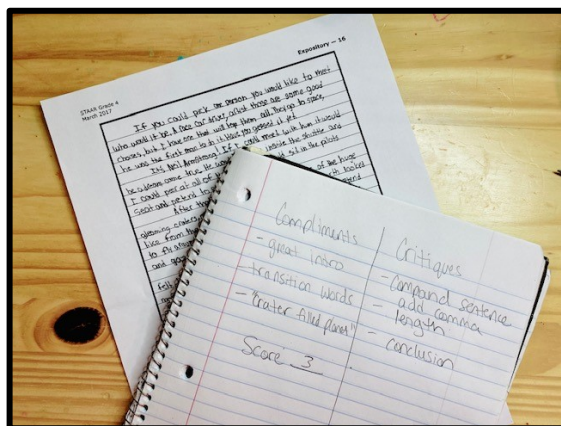 STAAR Grade 4
March 2017
Expository — 16
If you could pick one person you would like to meet
who would it be. A race car driver, artist those are some good
choses, but I have one that will top them all. They go to space,
he was the first man to do it. Have you guessed it yet
It's, Neil Armstrong! If I could meet with him it would
be a dream come true. He
inside the shuttle and
I could peer at all of
sit in the pilots
seat and pretend to
of the huge
After th
gleaming craters
looked
like from the
to fit
and
felt
Compliments
- great intro
- transition words
- "crater filled planet"
Score 3
Critiques
- compound sentence
- add comma
- length
- conclusion